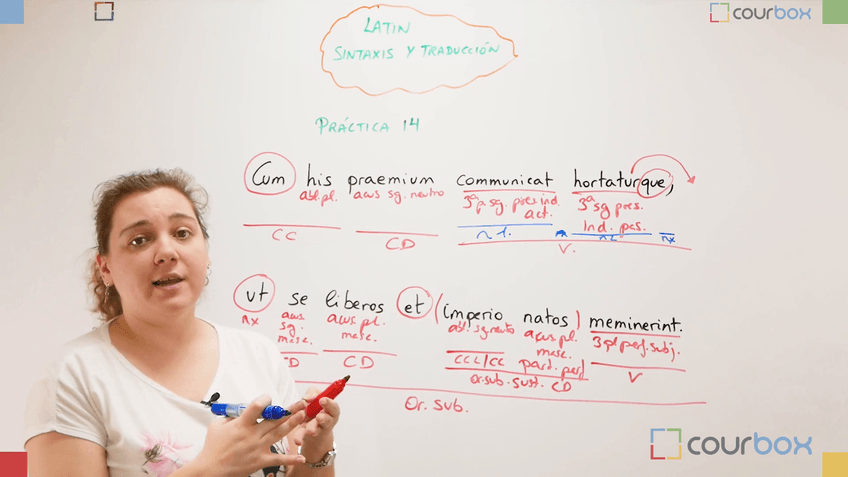 courbox
LATIN
SINTAXIS Y TRADUCCIÓN
PRÁCTICA 14
Cum his praemium communicat hortaturque,
abl.pl. acus sg. neutro 3ª p sg. pres ind. act. 3ª sg pres. Ind. pas.
n1. n2 nx
CC CD V.
ut se liberos et (imperio natos) meminerint.
nx acus sg. masc. acus pl. masc. abl. sg neutro acus pl. masc. part. perf 3ª pl perf. subj.
CD CD CCL/CC V
Or. sub. sust. CD
Or. sub.
courbox